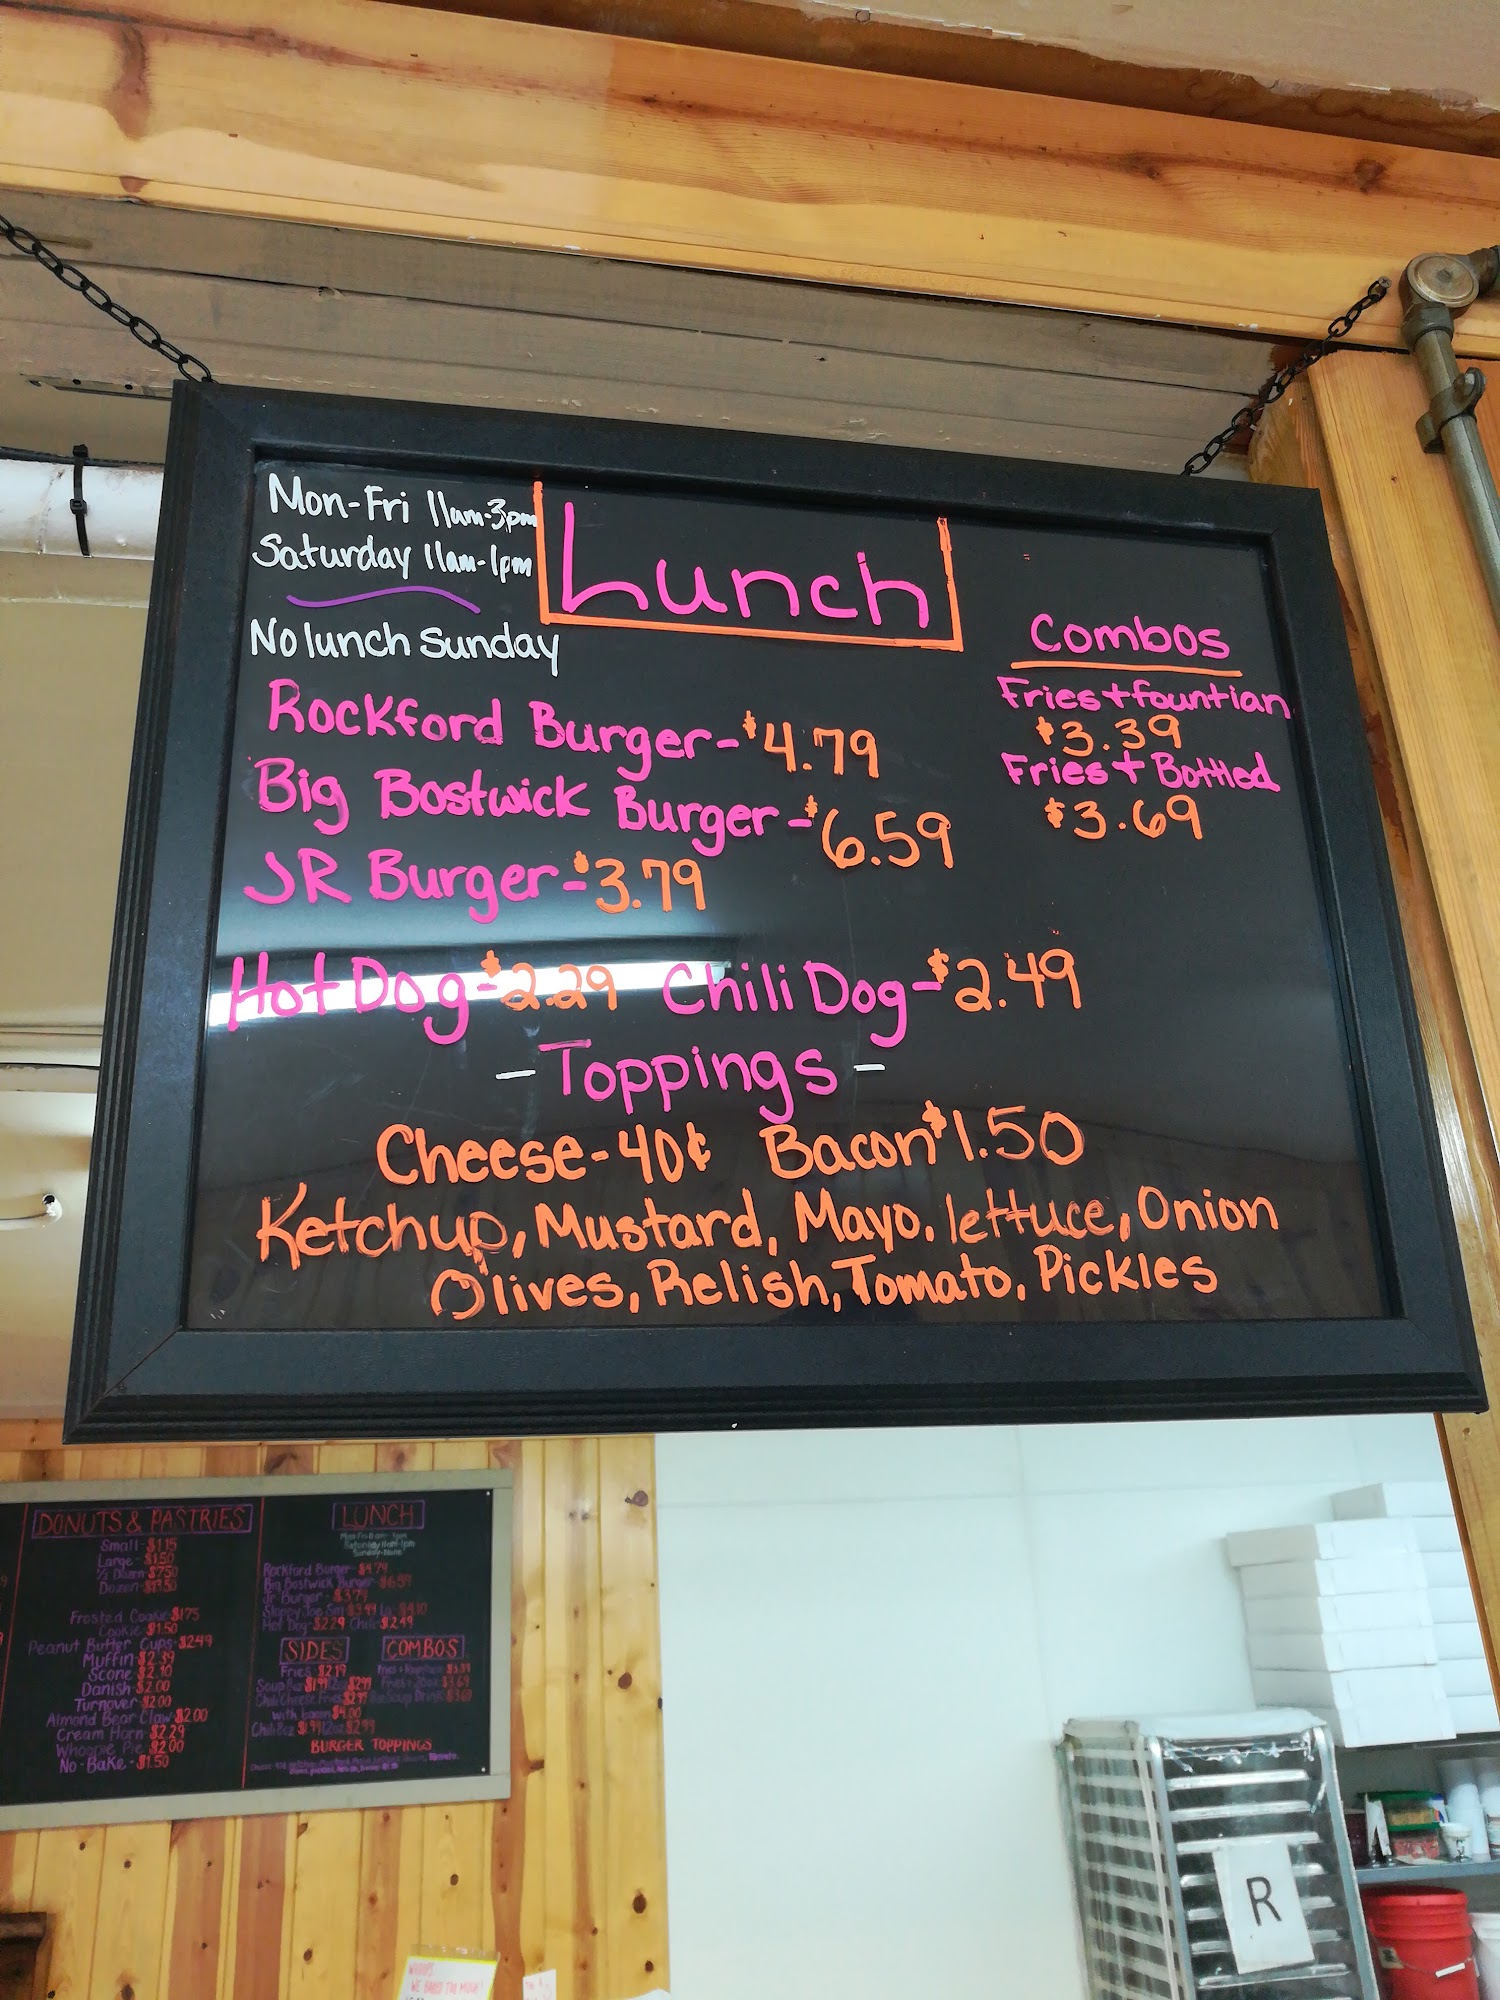 Mon-Fri 11am-3pm
Saturday 11am-1pm
No lunch Sunday
Lunch
Rockford Burger-$4.79
Big Bostwick Burger-$6.59
JR Burger-$3.79
Combos
Fries+fountian
$3.39
Fries + Bottled
$3.69
Hot Dog-$2.29 Chili Dog-$2.49
-Toppings-
Cheese-40¢ Bacon $1.50
Ketchup, Mustard, Mayo, lettuce, Onion
Olives, Relish, Tomato, Pickles
DONUTS & PASTRIES
Small-$1.15
Large-$1.50
1/2 Dozen $7.50
Dozen-$13.50
Frosted Cookie-$1.75
Cookie-$1.50
Peanut Butter Cups-$2.49
Muffin-$2.39
Scone-$2.10
Danish-$2.00
Turnover-$2.00
Almond Bear Claw-$2.00
Cream Horn-$2.29
Whoopie Pie-$2.00
No-Bake-$1.50
LUNCH
Saturday 11am-1pm
Rockford Burger-$4.79
Big Bostwick Burger-$6.59
Jr Burger-$3.79
Sloppy Joe Sm-$3.49
Hot Dog-$2.29 Chili-$2.49
SIDES
Fries $2.19
Chili Cheese Fries $2.99
with bacon $4.00
COMBOS
BURGER TOPPINGS
R